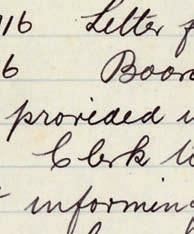 16 Letter f
6 Boar
provided
Clerk to
informing